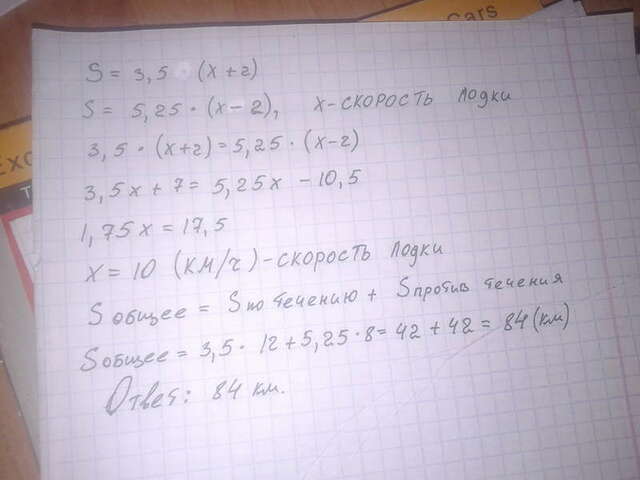 Cars
EXC
T
S = 3,5 · (x+2)
S = 5,25 · (x-2), x-скорость лодки
3,5 · (x+2) = 5,25 · (x-2)
3,5x + 7 = 5,25x - 10,5
1,75x = 17,5
x = 10 (км/ч) - скорость лодки
S общее = S по течению + S против течения
S общее = 3,5 · 12 + 5,25 · 8 = 42 + 42 = 84 (км)
Ответ: 84 км.